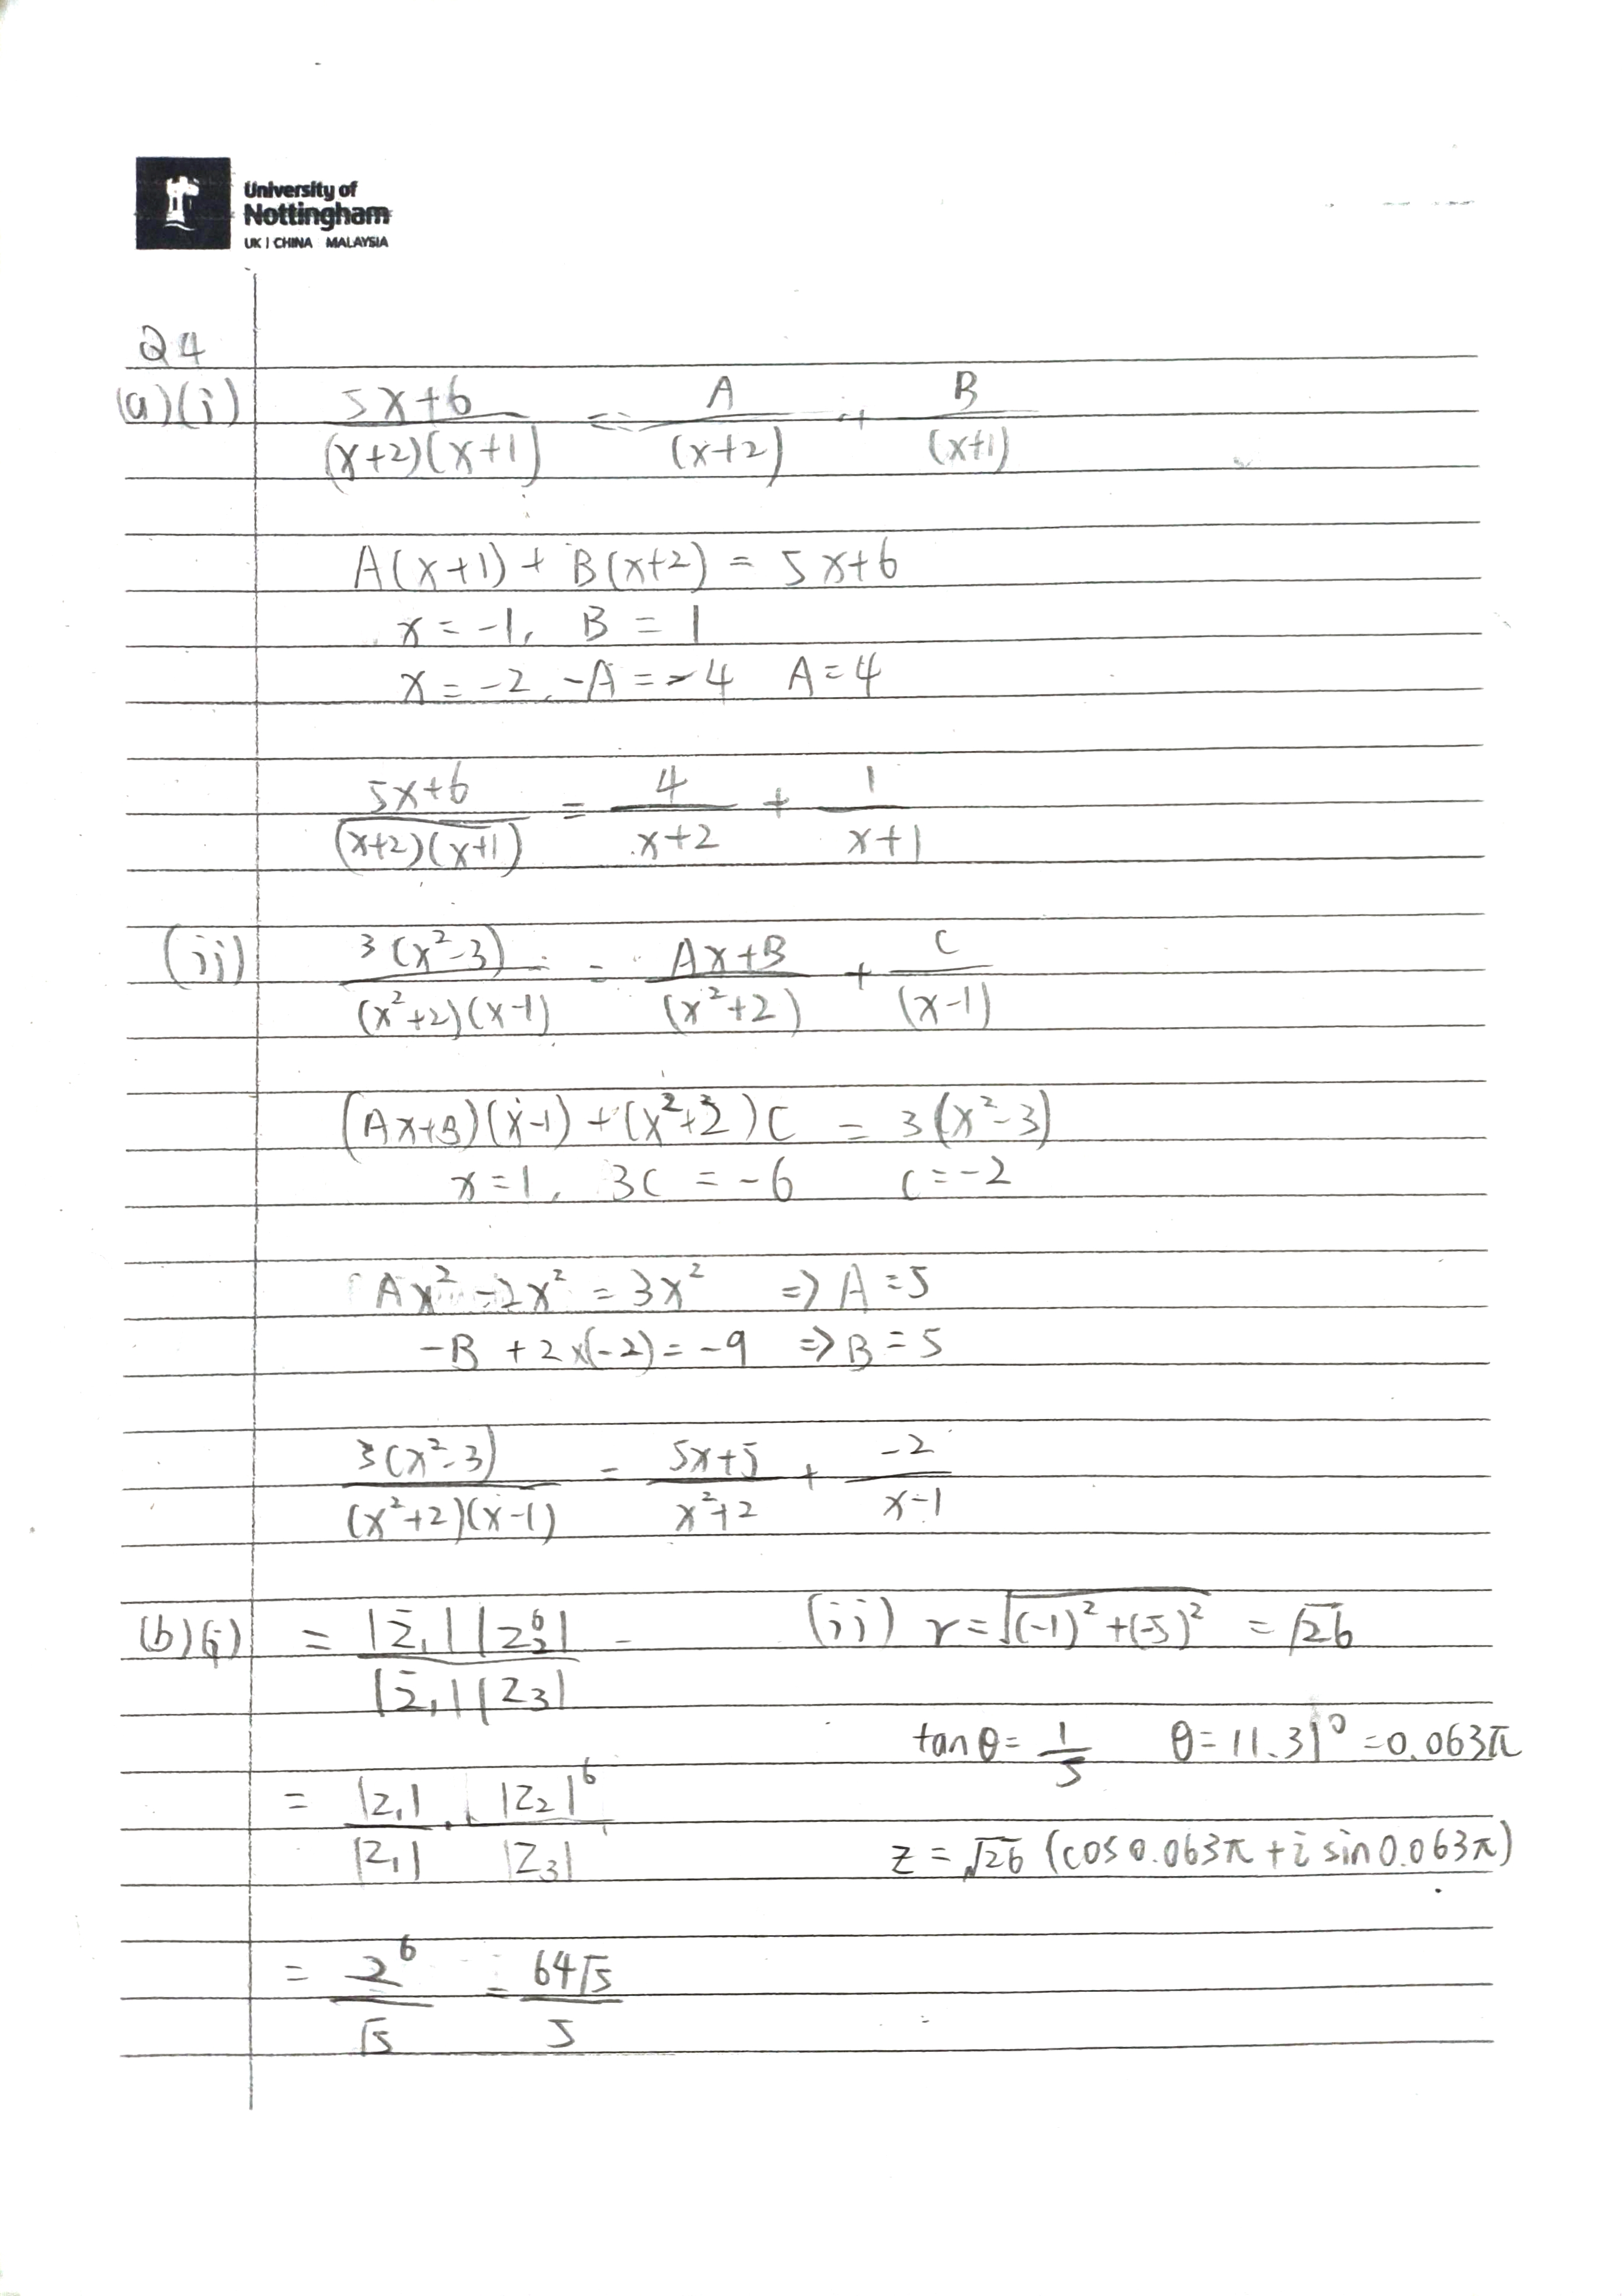 University of
Nottingham
UK | CHINA MALAYSIA
Q4
(a)(i) (5x+6)/((x+2)(x+1)) = A/(x+2) + B/(x+1)
A(x+1) + B(x+2) = 5x+6
x = -1, B = 1
x = -2, -A = -4 A = 4
(5x+6)/((x+2)(x+1)) = 4/(x+2) + 1/(x+1)
(ii) 3(x²-3)/((x²+2)(x-1)) = (Ax+B)/(x²+2) + C/(x-1)
(Ax+B)(x-1) + (x²+2)C = 3(x²-3)
x = 1, 3C = -6 C = -2
Ax² -2x² = 3x² => A = 5
-B + 2×(-2) = -9 => B = 5
3(x²-3)/((x²+2)(x-1)) = (5x+5)/(x²+2) + -2/(x-1)
(b)(i) = |z̄₁||z₂⁶|/|z̄₁||z₃|
= |z₁|/|z₁| · |z₂|⁶/|z₃|
= 2⁶/√5 = 64√5/5
(ii) r = √((-1)²+(-5)²) = √26
tanθ = 1/5 θ = 11.31° = 0.063π
z = √26 (cos0.063π + i sin0.063π)